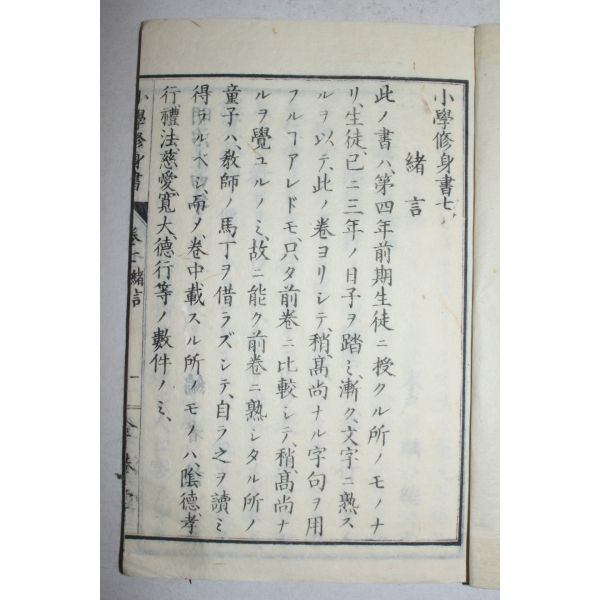 小學修身書七ノ
緒言
此ノ書ハ、第四年前期生徒ニ授クル所ノモノナ
リ、生徒、已ニ三年ノ日子ヲ踏ミ、漸ク、文字ニ熟ス
ルヲ以テ、此ノ卷ヨリシテ、稍、髙尚ナル字句ヲ用
フルヿアレドモ、只タ前卷ニ比較シテ、稍、髙尚ナ
ルヲ覺ユルノミ、故ニ能ク前卷ニ熟シタル所ノ
童子ハ、教師ノ馬丁ヲ借ラズシテ、自ラ之ヲ讀ミ
得ラルベシ、而メ、卷中載スル所ノモノハ、陰德、孝
行、禮法、慈愛、寬大、德行等ノ數件ノミ、
小學修身書 卷七 緒言 一